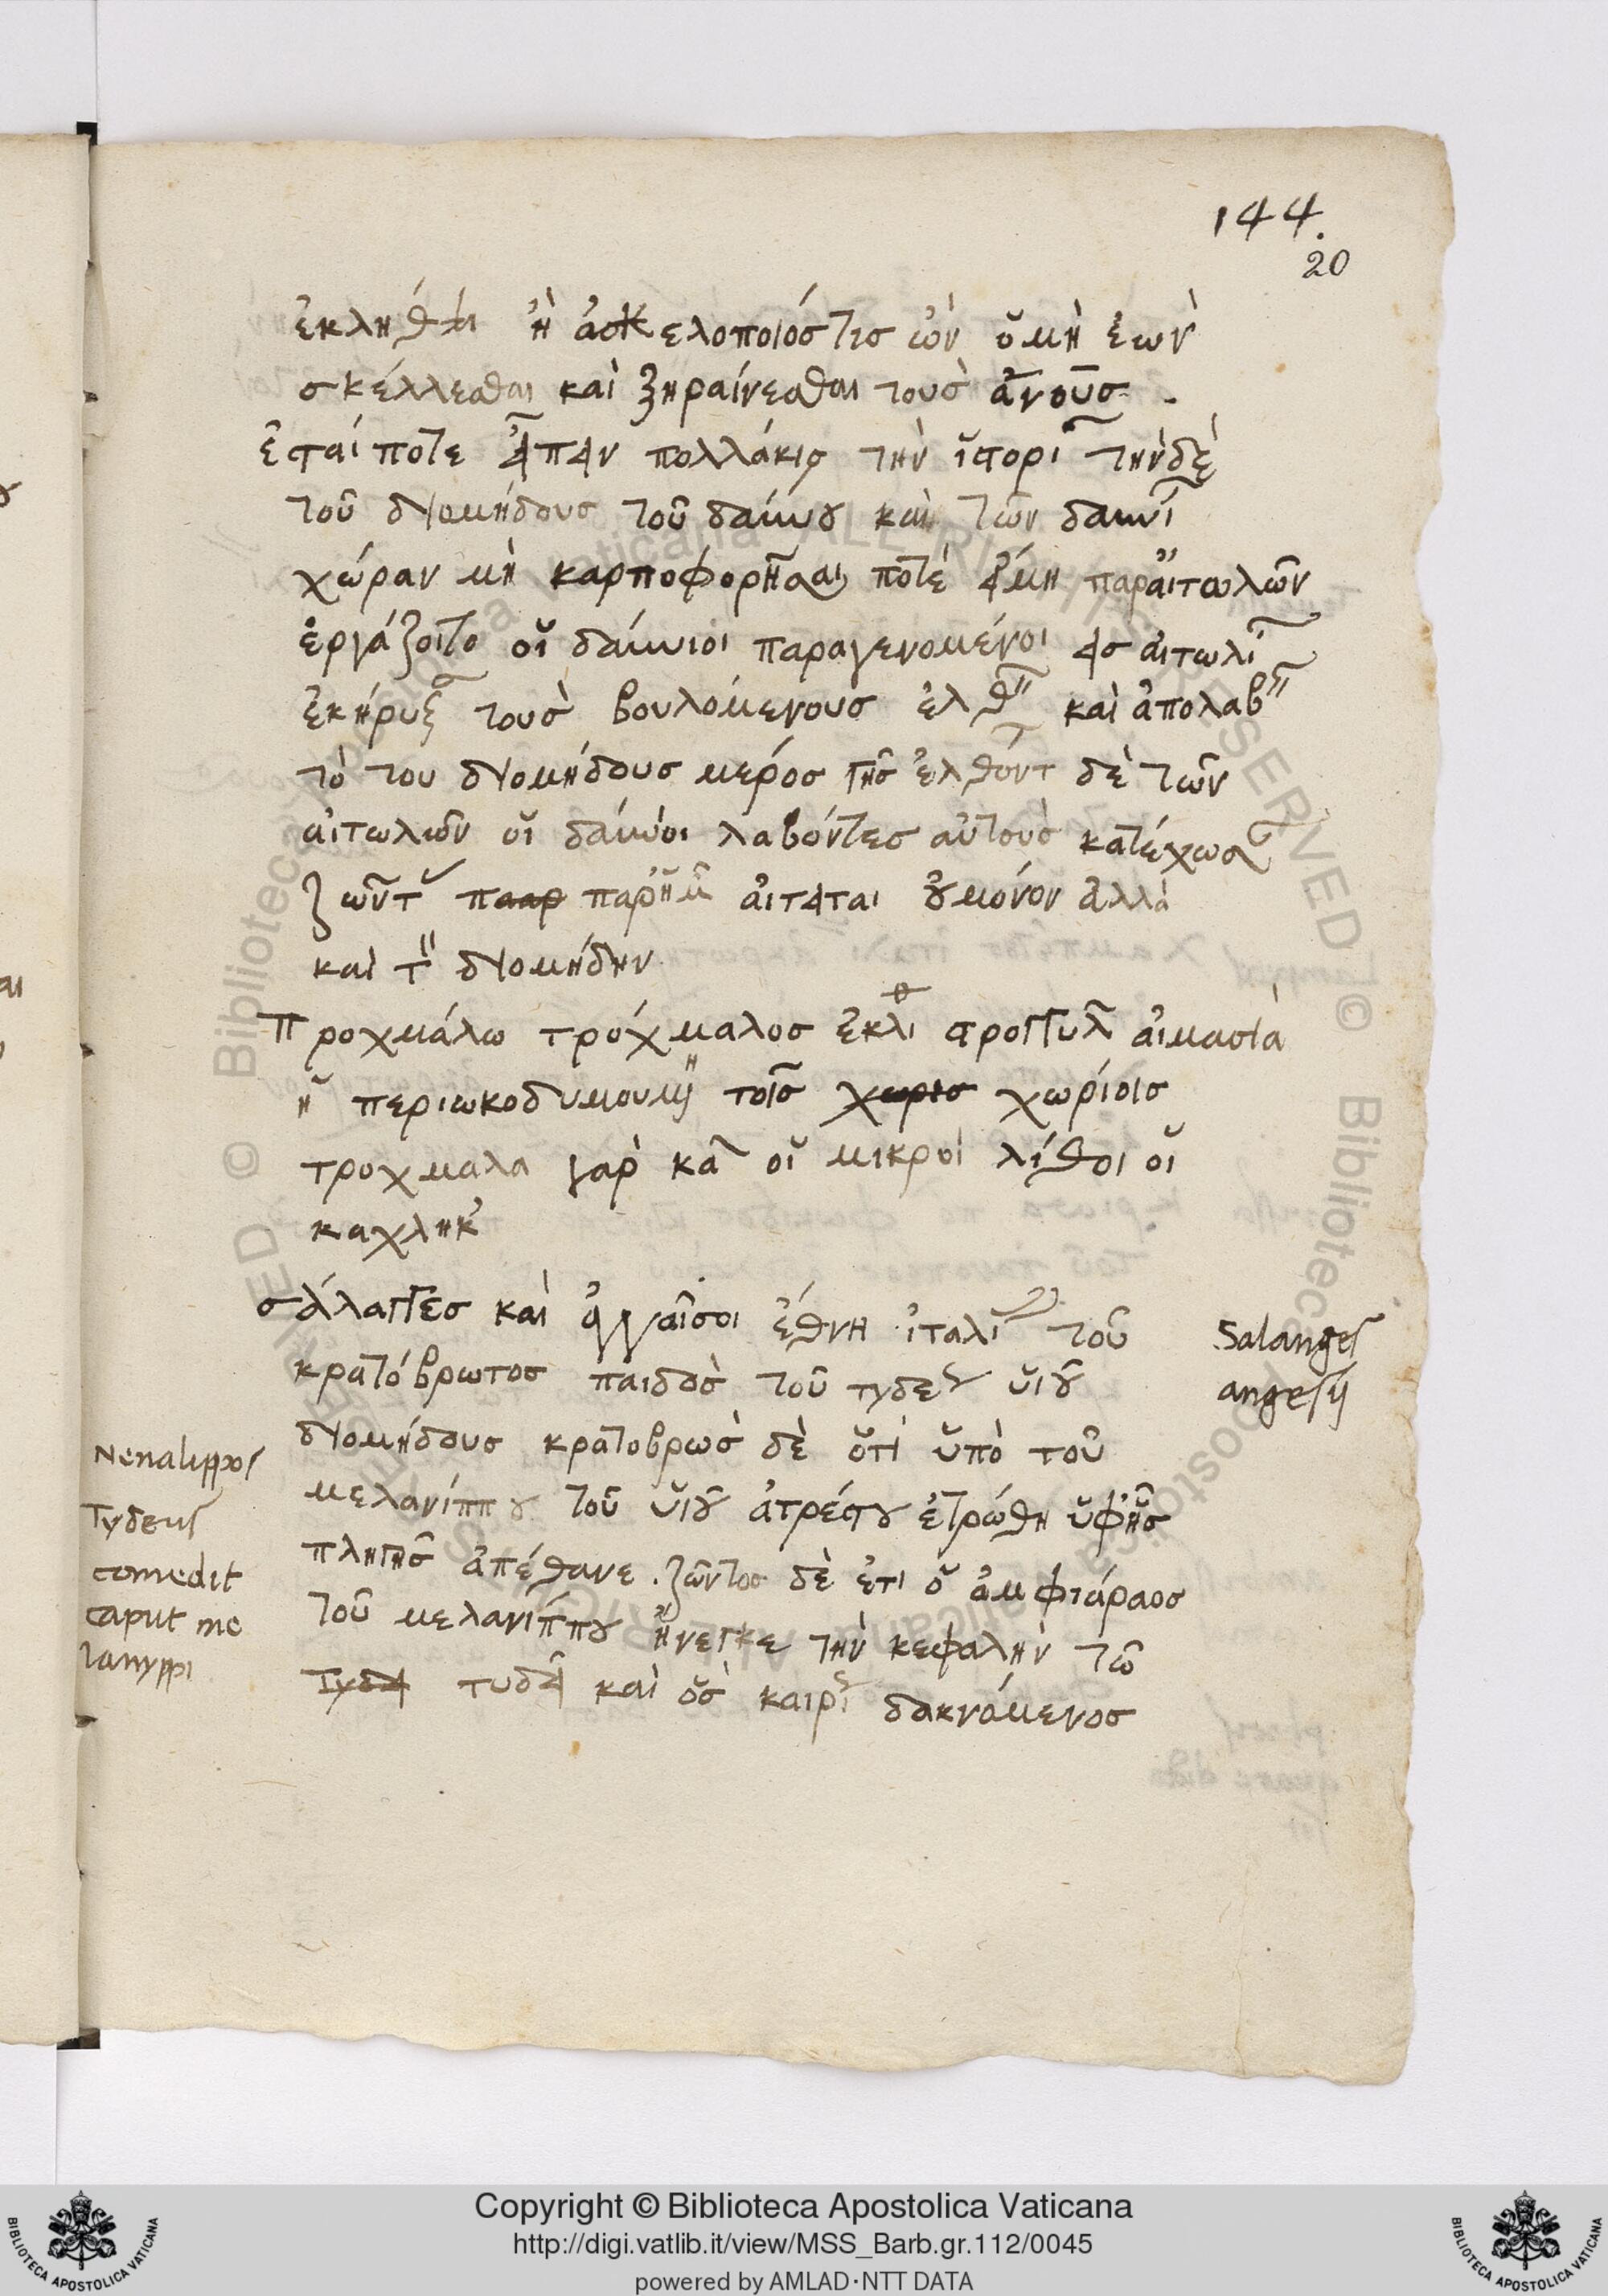 144.
20
ἐκλήθη ἢ ἀσκελοποιός τις ὢν ὁ μὴ ἐῶν
σκέλλεσθαι καὶ ξηραίνεσθαι τοὺς ἀνους.
ἔσται ποτε εἶπεν πολλάκις τὴν ἱστορι τήνδε
τοῦ διομήδους τοῦ δαύνου καὶ τῶν δαυνί
χώραν μὴ καρποφορῆσαι ποτέ εἰ μὴ παρ αἰτωλῶν
ἐργάζοιτο οἱ δαύνιοι παραγενομένοι εἰς αἰτωλι
ἐκήρυξ τοὺς βουλόμενους ἐλθ καὶ ἀπολαβ
τὸ του διομήδους μέρος γῆς ἐλθόντ δὲ τῶν
αἰτωλῶν οἱ δαύνιοι λαβόντες αὐτοὺς κατέχωσ
ζῶντ παρ αἰτεται οὐ μόνον ἀλλὰ
καὶ τ διομήδην
Τροχμάλω τρόχμαλος ἐκλι στρογγυλ αἱμασιὰ
ἢ τοῖς χωρίοις
τροχμαλα γὰρ κα οἱ μικροὶ λίθοι οἱ
καχληκ
σάλαγγες καὶ ἀγγαῖσοι ἔθνη ἰταλι τοῦ
κρατόβρωτος παιδὸς τοῦ τυδε υἱοῦ
διομήδους κρατοβρὼς δὲ ὅτι ὑπὸ τοῦ
μελανίππου τοῦ υἱοῦ ἀτρέστου ἐτρώθη ὑφῆς
πληγῆς ἀπέθανε. ζῶντος δὲ ἔτι ὁ ἀμφιάραος
τοῦ μελανίππου ἤνεγκε τὴν κεφαλὴν τῶ
τυδεῖ καὶ ὃς καιρι δακνόμενος
Salanges
angesij
Nenalippos
Tydeus
comedit
caput me
lanyppi
Copyright © Biblioteca Apostolica Vaticana
http://digi.vatlib.it/view/MSS_Barb.gr.112/0045
powered by AMLAD·NTT DATA
BIBLIOTECA APOSTOLICA VATICANA
BIBLIOTECA APOSTOLICA VATICANA